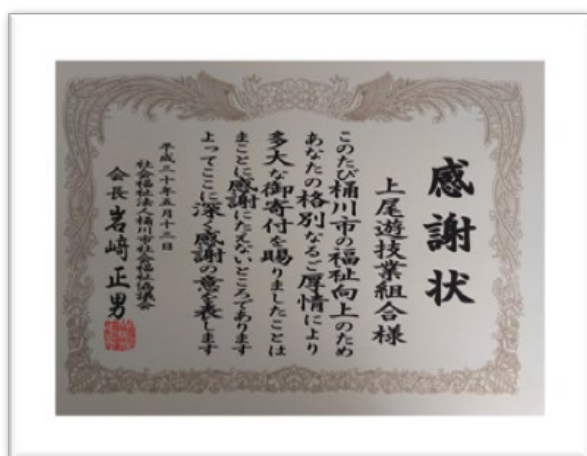 感謝状
上尾遊技業組合様
このたび桶川市の福祉向上のため
あなたの格別なるご厚情により
多大な御寄付を賜りましたことは
まことに感謝にたえないところであります
よってここに深く感謝の意を表します
平成三十年五月十三日
社会福祉法人桶川市社会福祉協議会
会長 岩﨑正男